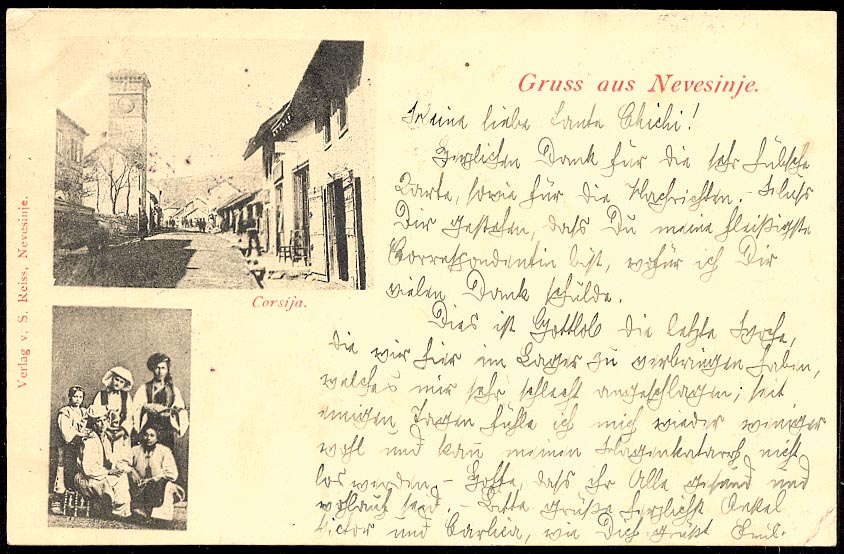 Gruss aus Nevesinje.
Meine liebe Tante Chichi!
Herzlichen Dank für die sehr hübsche
Karte, sowie für die Nachrichten. - Muss
Dir gestehen, dass Du meine fleißigste
Korrespondentin bist, wofür ich Dir
vielen Dank schulde.
Dies ist Gottlob die letzte Woche,
die wir hier im Lager zu verbringen haben,
welches mir sehr schlecht angeschlagen; seit
einigen Tagen fühle ich mich wieder weniger
wohl und kann meinen Magenkatarrh nicht
los werden. - Hoffe, dass ihr Alle gesund und
wohlauf seid. - Bitte grüße herzlichst Onkel
Victor und Carlica, wie Dich grüßt Emil.
Corsija.
Verlag v. S. Reiss, Nevesinje.